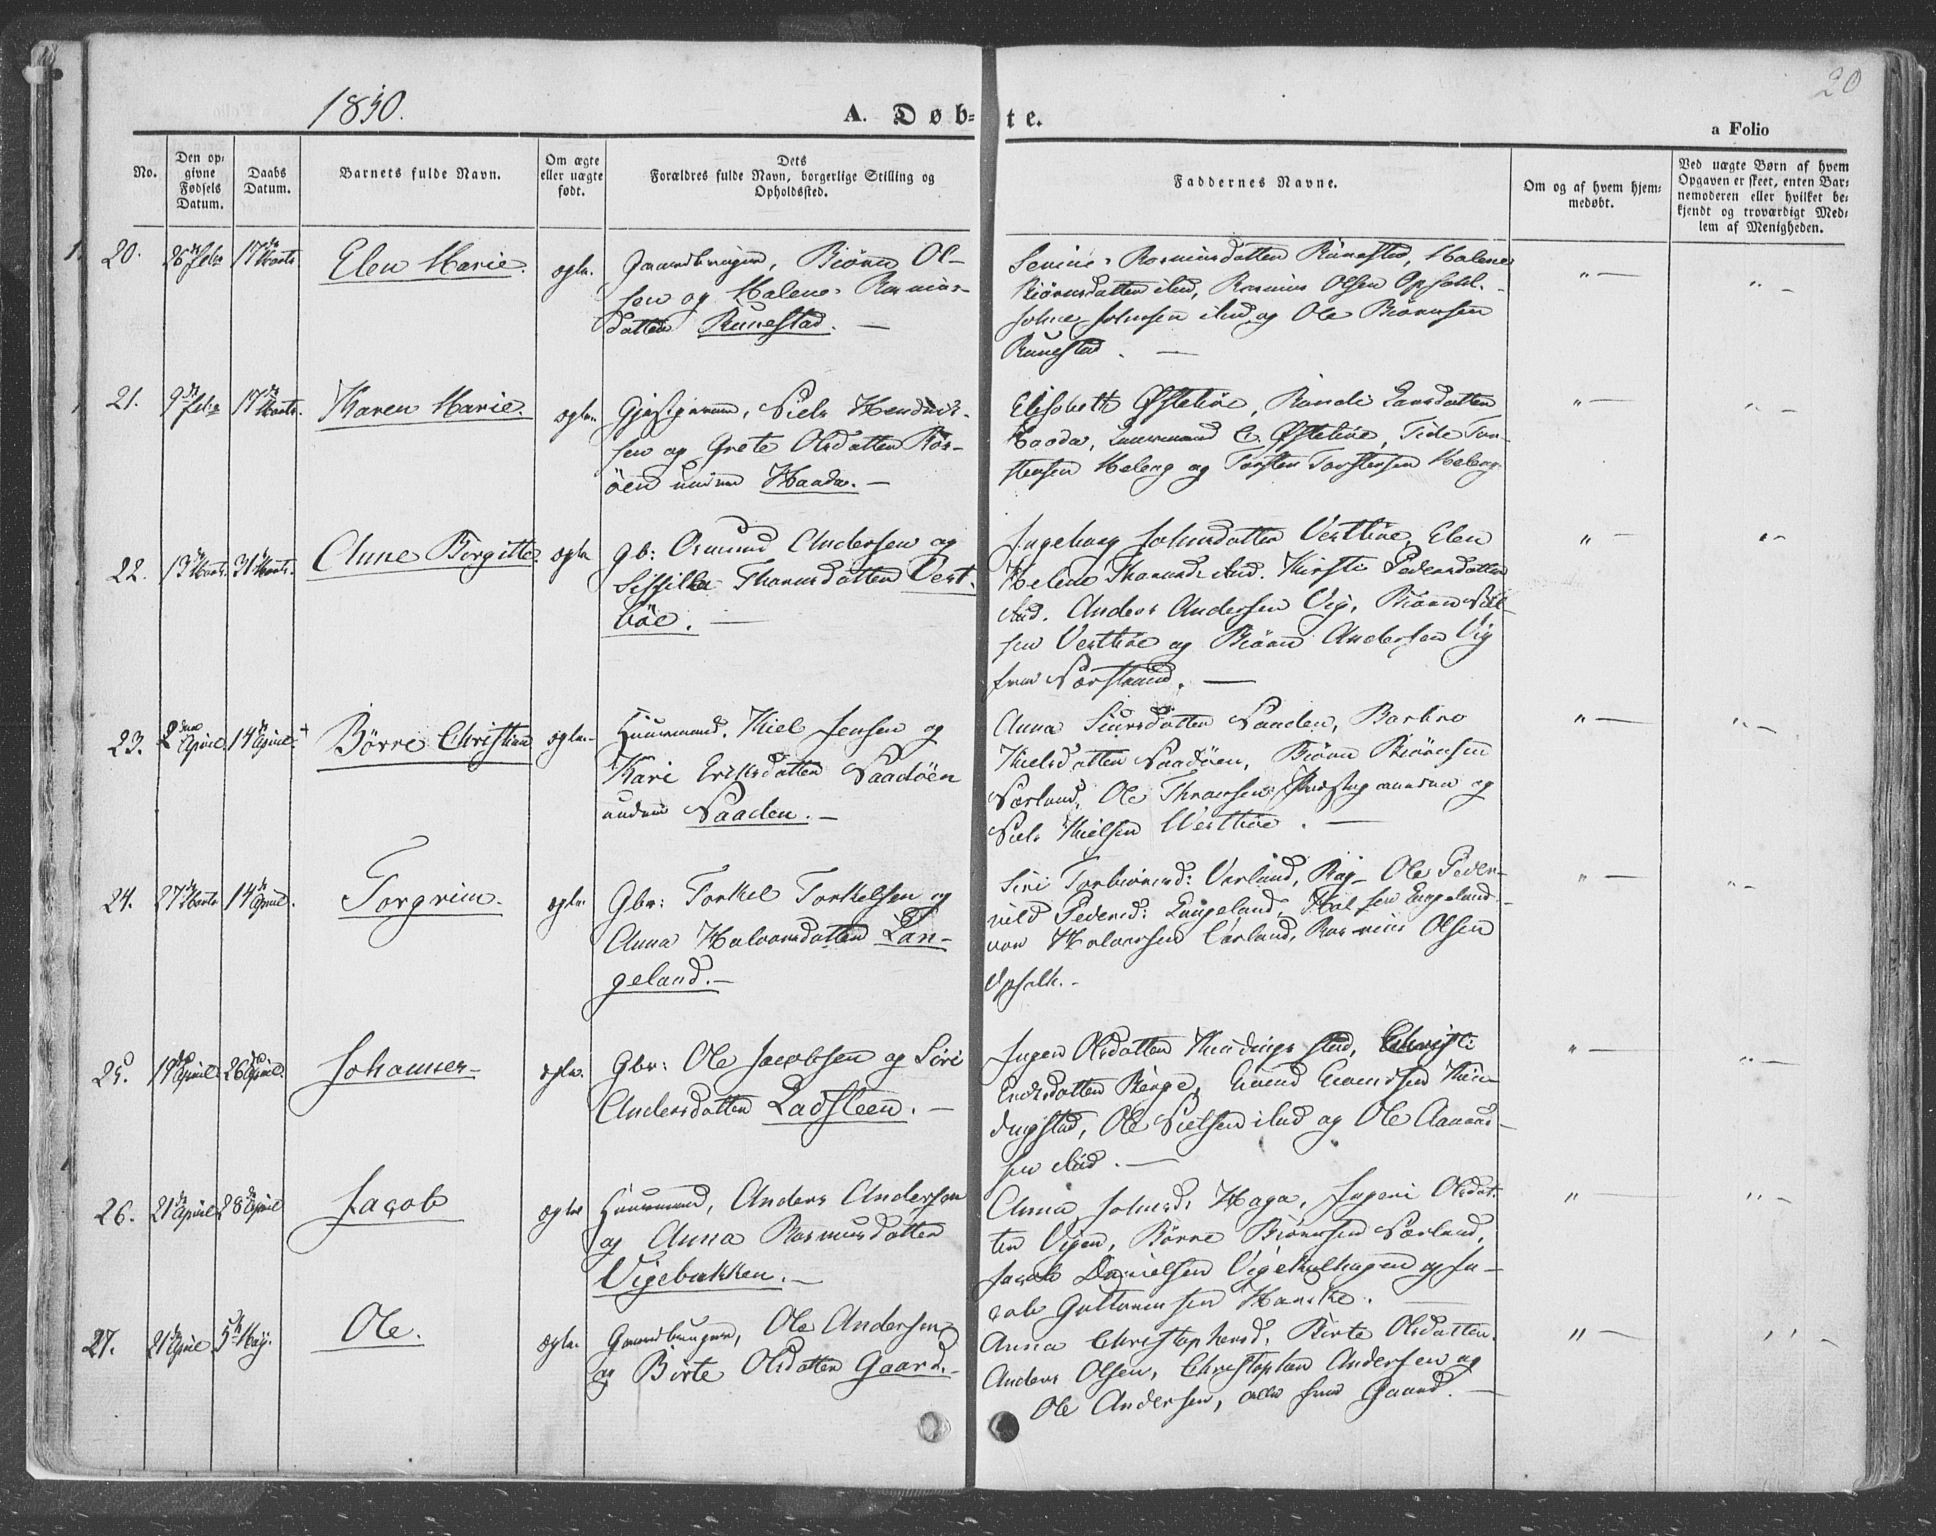 1850.
A. Døb-
te.
20
a Folio
No.
Den op-
givne
Fødsels
Datum.
Daabs
Datum.
Barnets fulde Navn.
Om ægte
eller uægte
født.
Dets
Forældres fulde Navn, borgerlige Stilling og
Opholdssted.
Faddernes Navne.
Om og af hvem hjem-
medøbt.
Ved uægte Børn af hvem
Opgaven er skeet, enten Bar-
nemoderen eller hvilket be-
kjendt og troværdigt Med-
lem af Menigheden.
20. 26de Febr 17de Marts Elen Marie. ægte. Gaardbruger, Biørn Ol-
sen og Malene Rasmus-
datter Runestad. —
Rasmusdatter Runestad, Malene
Biørnsdatter ibid, Rasmus Olsen Opsahl.
Johnsen ibid og Ole Biørnsen
Runestad. —
" — " -
21. 9de Febr 17de Marts Karen Marie. ægte. Niels Hendrik-
sen og Grete Olsdatter
under Haada. —
Elisabeth Østebøe, Larsdatter
Haada, C. Østebøe, Tor-
stensen Heleng og Torsten Torstensen Heleng.
" — " -
22. 13de Marts. 31te Marts. Anne Birgitte. ægte gb: Osmund Andersen og
Sissilla Thamsdatter Vest-
bøe. —
Ingeborg Johnsdatter Vestbøe, Elen
Helene ibid. Kirsti Pedersdatter
ibid. Anders Andersen Vig, Biørn Niel-
sen Vestbøe og Biørn Andersen Vig
" — " -
23. 2den April 14de April. Børre Christian ægte. Huusmand, Kiel Jensen og
Kari Eriksdatter Naadøen
under Naaden. —
Anna Siursdatter Naaden, Barbro
Kielsdatter Naadøen, Biørn Biørnsen
Nærland, Ole og
Niels Kielsen Westbøe. —
" — " -
24. 27de Marts 14de April. Torgrim. ægte. Gbr: Torkel Torkelsen og
Anna Halvorsdatter Lan-
geland. —
Siri Torbiørnsd: Varland, Rag- Ole Peder-
nild Pedersd: Langeland, Hal sen Langeland.
vor Halvorsen Varland, Rasmus Olsen
Opsahl. -
" — " -
25. 19de April. 26de April. Johannes ægte. Gbr: Ole Jacobsen og Siri
Andersdatter Ladsteen. —
Olsdatter Christi
Berge,
Ole Nielsen ibid og Ole Aamund-
sen ibid. —
" — " -
26. 21de April 28de April Jacob ægte Huusmand, Anders Andersen
og Anna Rasmusdatter
Vigebakken. —
Anna Johnsd: Haga, Ingeri Olsdat-
ter Vigen, Børre Biørnsen Nærland,
Jacob Danielsen og Ja-
cob Guttormsen
" " -
27. 21de April 5te May. Ole. ægte. Gaardbruger, Ole Andersen
og Birte Olsdatter Gaard. —
Anna Christophersd. Birte Olsdatter.
Anders Olsen, Christopher Andersen og
Ole Andersen, alle fra Gaard. —
" — " -